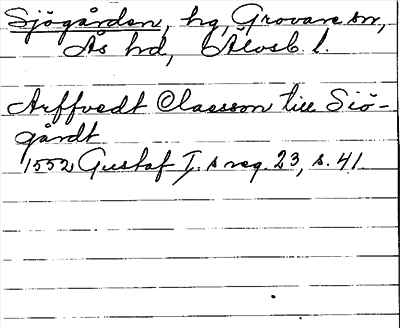 Sjögården, hg, Grovare sn,
Ås hd, Älvsb. l.
Arffvedt Claesson till Siö-
gårdt
1552 Gustaf I:s reg. 23, s. 41